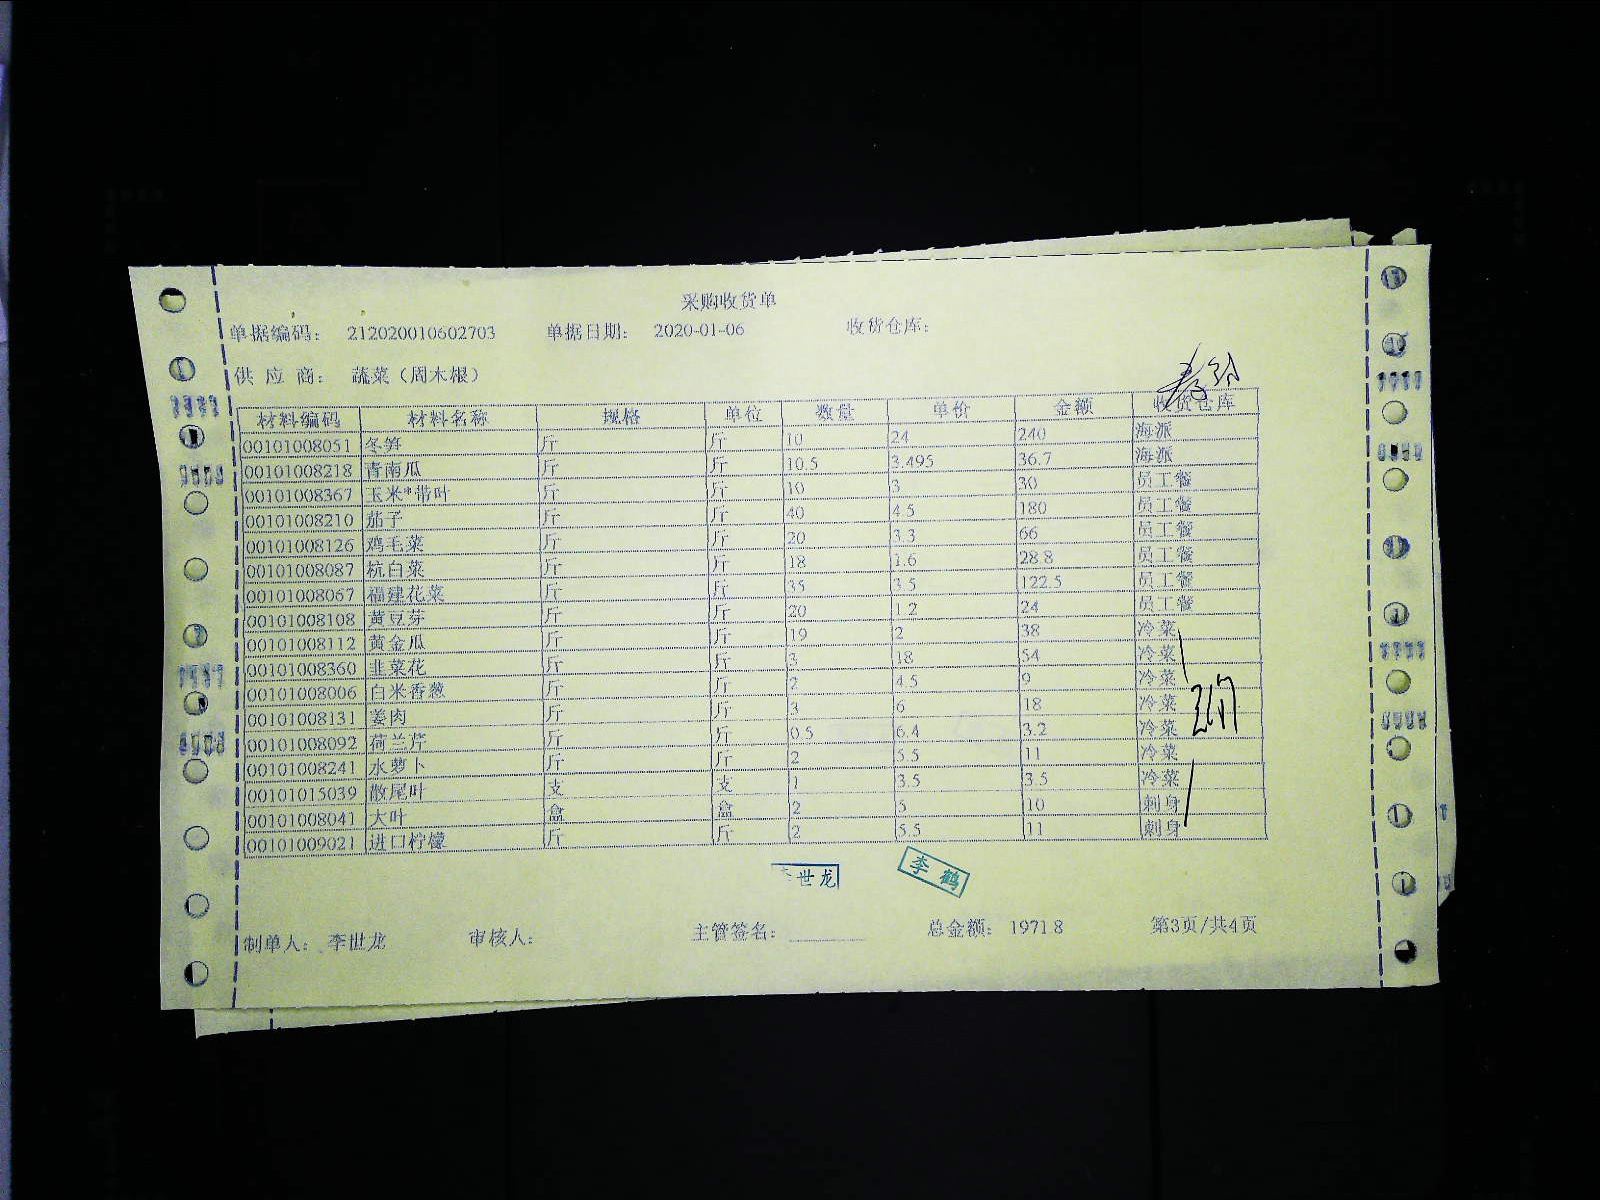 采购收货单
单据编码： 212020010602703 单据日期： 2020-01-06 收货仓库：
供 应 商： 蔬菜（周木根）
材料编码 材料名称 规格 单位 数量 单价 金额 收货仓库
00101008051 冬笋 斤 斤 10 24 240 海派
00101008218 青南瓜 斤 斤 10.5 3.495 36.7 海派
00101008367 玉米*带叶 斤 斤 10 3 30 员工餐
00101008210 茄子 斤 斤 40 4.5 180 员工餐
00101008126 鸡毛菜 斤 斤 20 3.3 66 员工餐
00101008087 杭白菜 斤 斤 18 1.6 28.8 员工餐
00101008067 福建花菜 斤 斤 35 3.5 122.5 员工餐
00101008108 黄豆芽 斤 斤 20 1.2 24 员工餐
00101008112 黄金瓜 斤 斤 19 2 38 冷菜
00101008360 韭菜花 斤 斤 3 18 54 冷菜
00101008006 白米香葱 斤 斤 2 4.5 9 冷菜
00101008131 姜肉 斤 斤 3 6 18 冷菜
00101008092 荷兰芹 斤 斤 0.5 6.4 3.2 冷菜
00101008241 水萝卜 斤 斤 2 5.5 11 冷菜
00101015039 散尾叶 支 支 1 3.5 3.5 冷菜
00101008041 大叶 盒 盒 2 5 10 刺身
00101009021 进口柠檬 斤 斤 2 5.5 11 刺身
李世龙 李鹤
制单人： 李世龙 审核人： 主管签名： 总金额： 1971.8 第3页/共4页